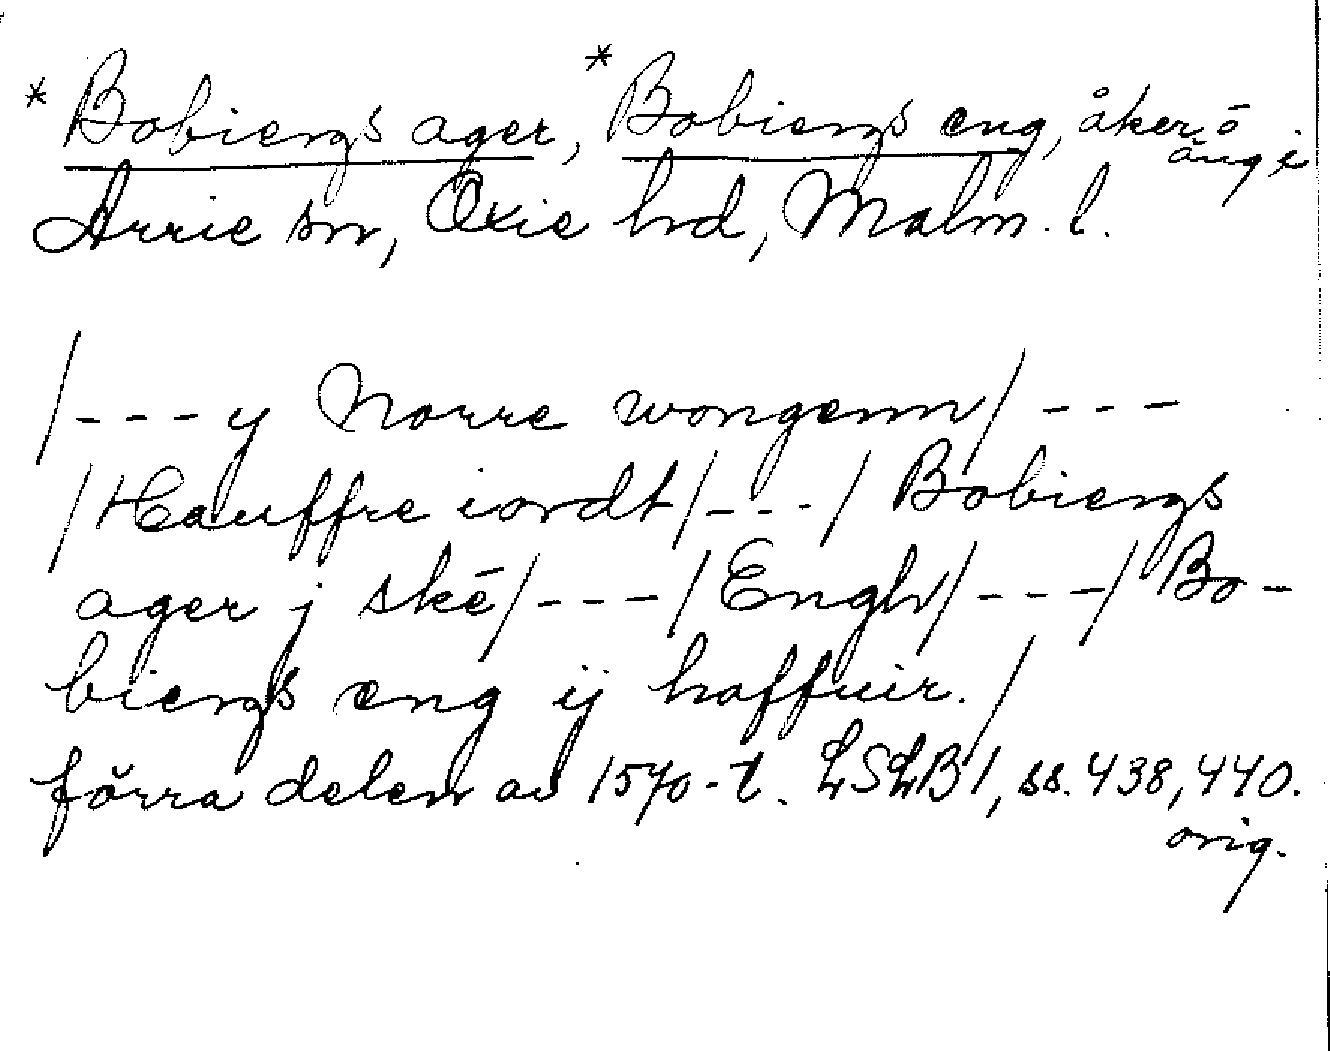 * Bobiergs ager, * Bobiergs eng, åker o
äng i
Arrie sn, Oxie hd, Malm. l.
/--- y Norre wongenn/ ---
/Hauffre iordt/---/ Bobiergs
ager j skē/---/Engh/---/ Bo-
biergs eng ij haffuir./
förra delen av 1570-t. LSLB 1, ss. 438, 440.
orig.